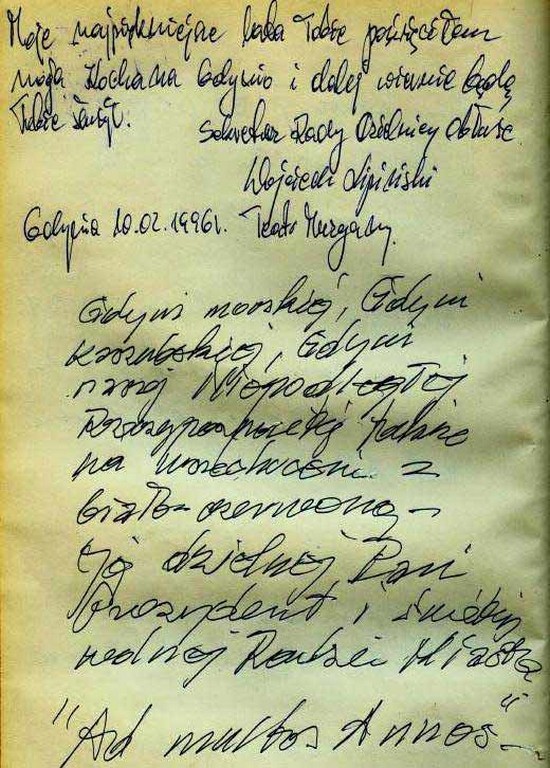 Moje najpiękniejsze lata Tobie poświęciłem
moja Kochana Gdynio i dalej wiernie będę
Tobie służył.
Sekretarz Rady Dzielnicy Obłuże
Wojciech Lipiński
Gdynia 10.02.1996r. Teatr Muzyczny.
Gdyni morskiej, Gdyni
kaszubskiej, Gdyni
naszej Niepodległej
Rzeczypospolitej także
na
biało-czerwoną –
Jej dzielnej Pani
Prezydent i
Radzie Miasta
"Ad multos Annos"